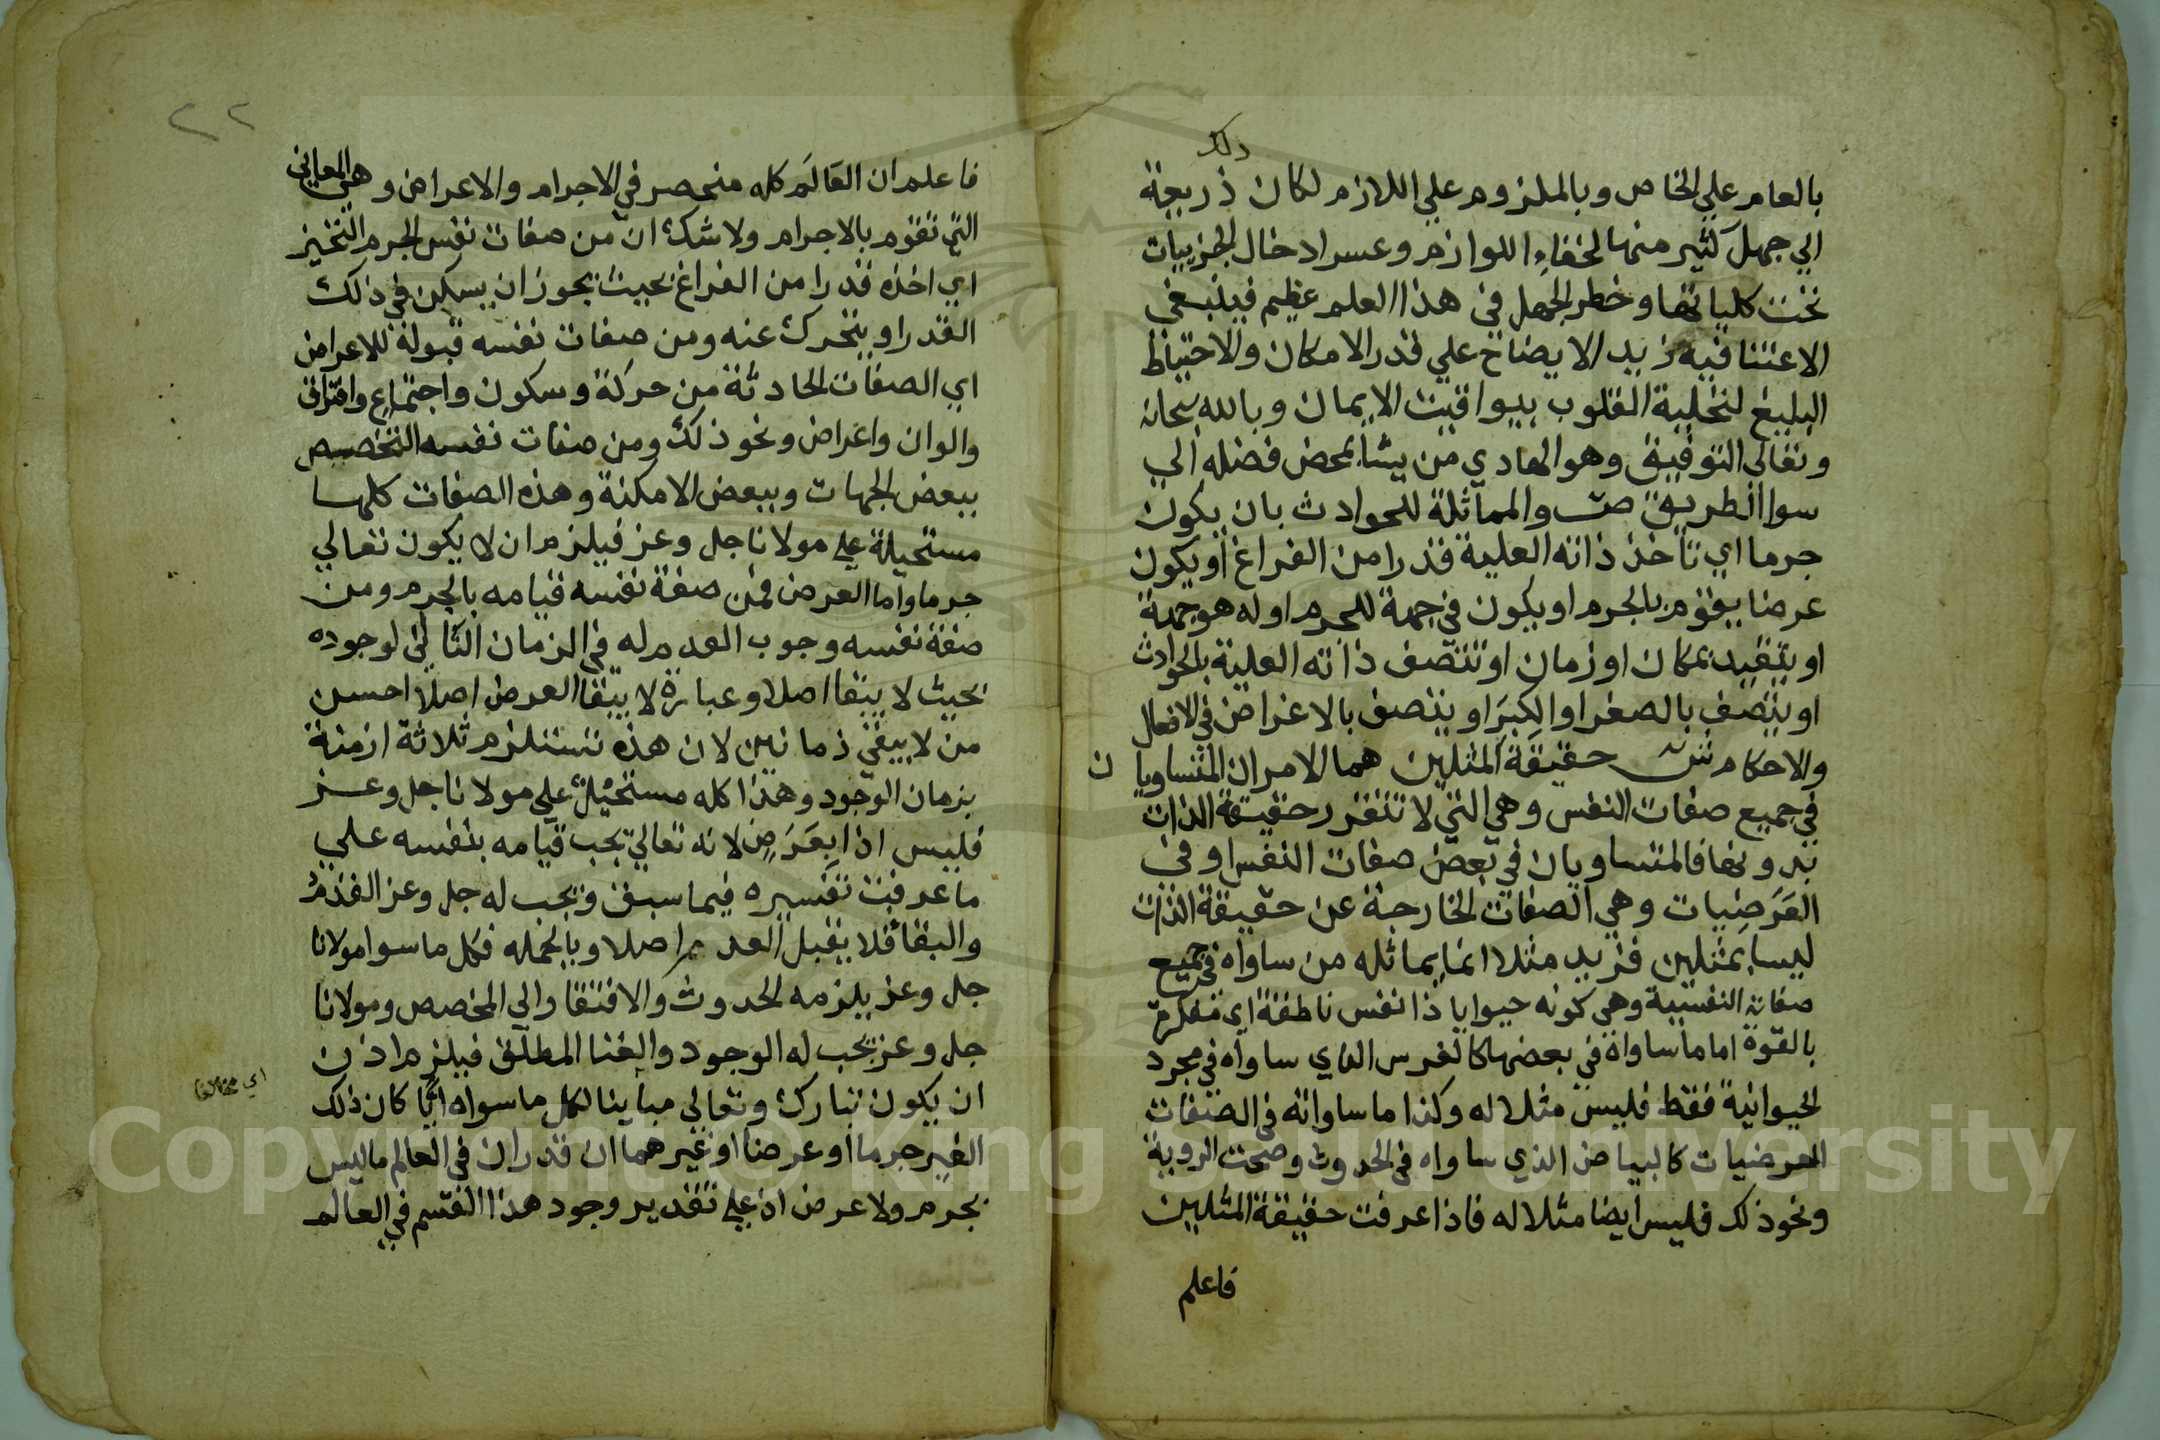 ذلك
بالعام علي الخاص وبالملزوم علي اللازم لكان ذريعة
الي جهل كثير منها لخفاء اللوازم وعسر ادخال الجزييات
تحت كلياتها وخطر الجهل في هذا العلم عظيم فينبغي
الاعتنا فيه بزيد الايضاح علي قدر الامكان والاحتياط
البليغ لتحلية القلوب بيواقيت الايمان وبالله سبحانه
وتعالي التوفيق وهو الهادي من يشا بمحض فضله الي
سوا الطريق ص والمماثلة للحوادث بان يكون
جرما اي تاخذ ذاته العلية قدرا من الفراغ او يكون
عرضا يقوم بالجرم او يكون في جهة للجرم او له هو جهة
او يتقيد بمكان او زمان او تتصف ذاته العلية بالحوادث
او يتصف بالصغر او الكبر او يتصف بالاغراض في الافعال
والاحكام ش حقيقة المثلين هما الامران المتساويان
في جميع صفات النفس وهي التي لا تتقرر حقيقة الذات
بدونها فالمتساويان في بعض صفات النفس او في
العَرَضِيات وهي الصفات الخارجة عن حقيقة الذات
ليسا بمثلين فزيد مثلا انما يماثله من ساواه في جميع
صفاته النفسية وهي كونه حيوانا ذا نفس ناطقة اي مفكرة
بالقوة اما ما ساواه في بعضها كالفرس الذي ساواه في مجرد
الحيوانية فقط فليس مثلا له وكذا ما ساواته في الصفات
العرضيات كالبياض الذي ساواه في الحدوث وصحت الروية
ونحو ذلك فليس ايضا مثلا له فاذا عرفت حقيقة المثلين
فاعلم
٢٢
فاعلم ان العَالَم كله منحصر في الاجرام والاعراض وهي المعاني
التي تقوم بالاجرام ولا شك ان من صفات نفس الجرم التحيز
اي اخذه قدرا من الفراغ بحيث يجوز ان يسكن في ذلك
القدر او يتحرك عنه ومن صفات نفسه قبوله للاعراض
اي الصفات الحادثة من حركة وسكون واجتماع وافتراق
والوان واعراض ونحو ذلك ومن صفات نفسه التخصيص
ببعض الجهات وببعض الامكنة وهذه الصفات كلها
مستحيلة علي مولانا جل وعز فيلزم ان لا يكون تعالي
جرما واما العرض فمن صفة نفسه قيامه بالجرم ومن
صفة نفسه وجوب العدم له في الزمان الثاني لوجوده
بحيث لا يبقا اصلا وعبارة لا يبقا العرض اصلا احسن
من لا يبقي زمانين لان هذه تستلزم ثلاثة ازمنة
بزمان الوجود وهذا كله مستحيل علي مولانا جل وعز
فليس اذا بِعَرَضِ لانه تعالي يجب قيامه بنفسه علي
ما عرفت تفسيره فيما سبق ويجب له جل وعز القدم
والبقا فلا يقبل العدم اصلا وبالجمله فكل ما سوا مولانا
جل وعز يلزمه الحدوث والافتقار الي المخصص ومولانا
جل وعز يجب له الوجود والغنا المطلق فيلزم اذن
ان يكون تبارك وتعالي مباينا لكل ما سواه ايًّا كان ذلك
اي مخالفا
الغير جرما او عرضا او غيرهما ان قدر ان في العالم ما ليس
بجرم ولا عرض اذ علي تقدير وجود هذا القسم في العالم
Copyright © King Saud University